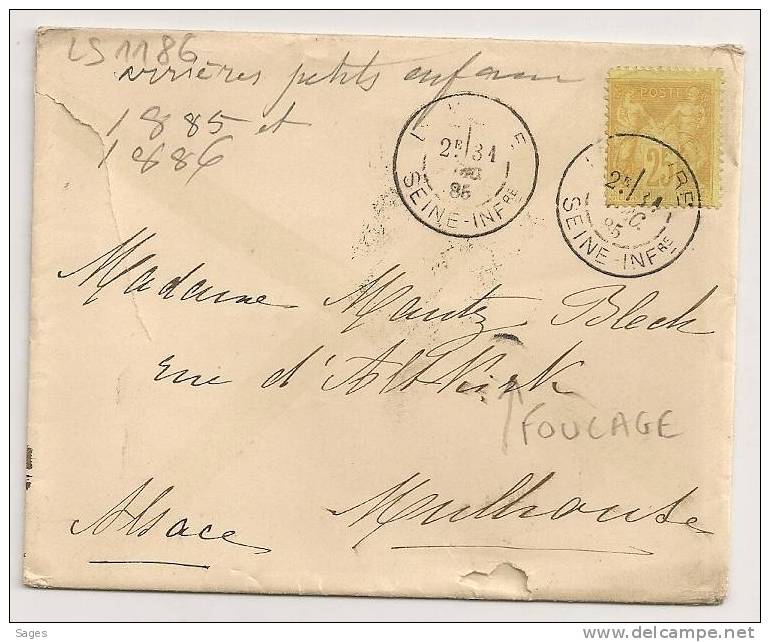 LS 1186
arrières petits enfans
1885 et
1886
POSTE
25
2E/31
85
SEINE-INFRE
RE
2E/31
85
SEINE-INFRE
Madame Mantz Blech
rue d'Altkirk
FOULAGE
Alsace Mulhouse
Sages
delcampe.net